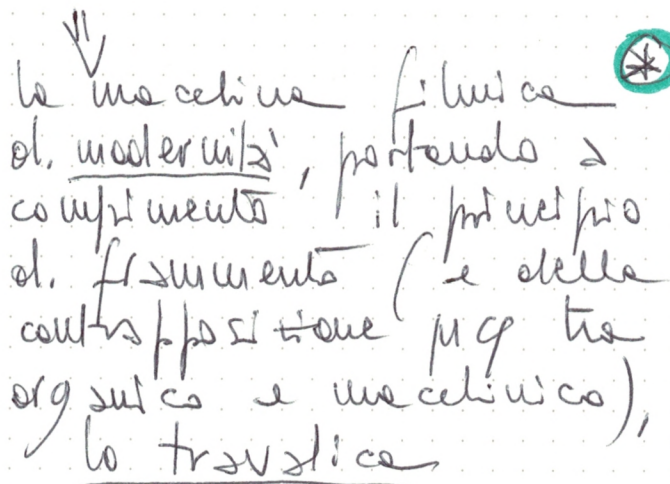 la macchina filmica
di modernità, portando a
compimento il principio
di frammento (e della
contrapposizione tra
organico e macchinico),
lo travalica